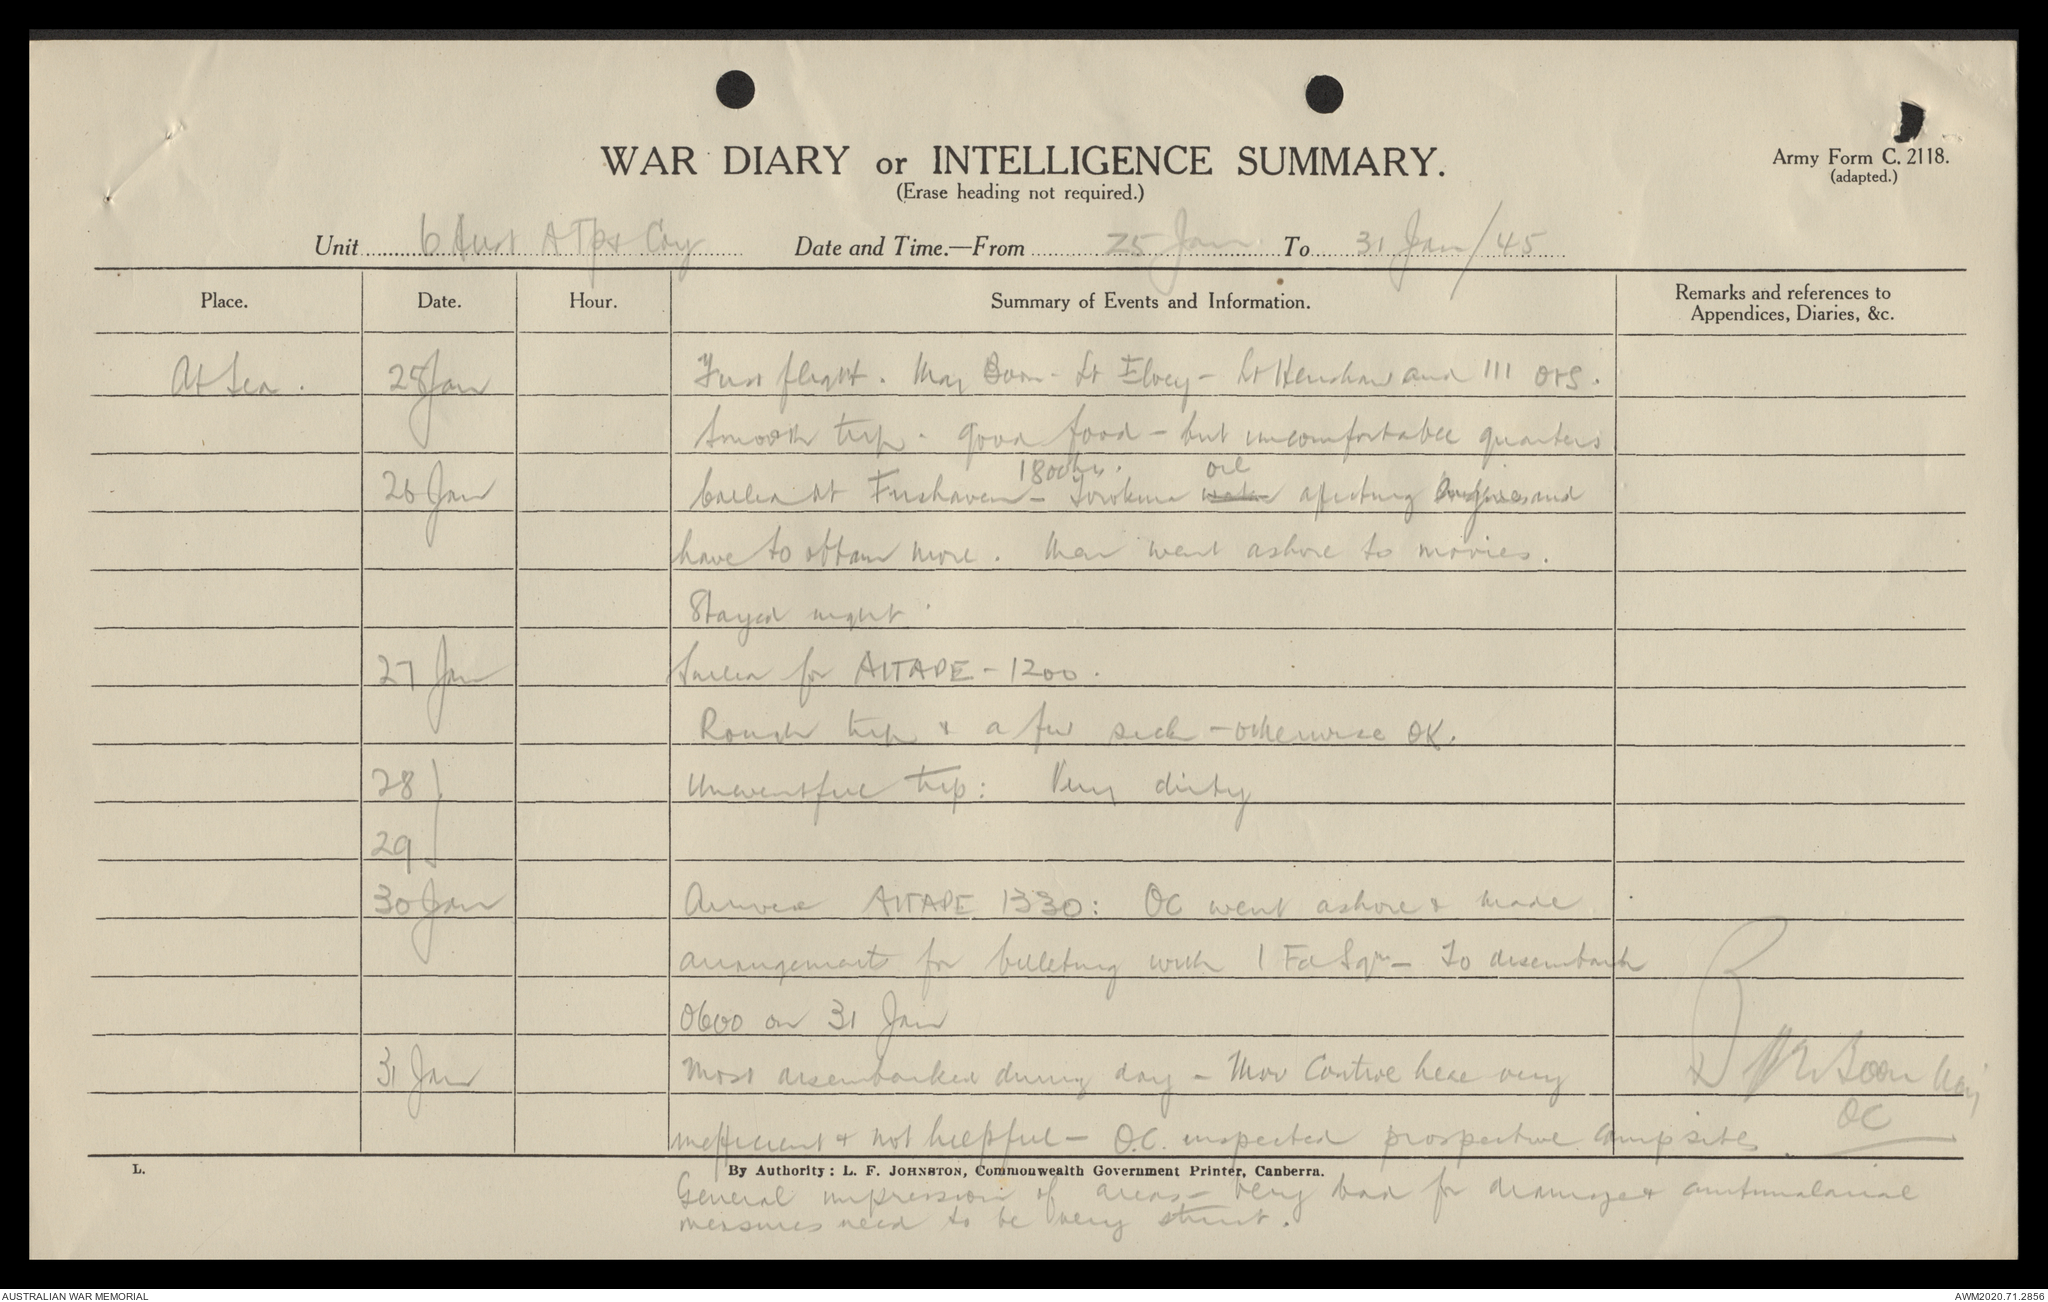 WAR DIARY or INTELLIGENCE SUMMARY.
Army Form C. 2118.
(adapted.)
(Erase heading not required.)
Unit 6 Aust A Tpt Coy Date and Time.—From 25 Jan To 31 Jan/45
Place. Date. Hour. Summary of Events and Information. Remarks and references to Appendices, Diaries, &c.
At Sea. 25 Jan First flight. Maj Boon - Lt Elvey - Lt Henshaw and 111 ORS.
Smooth trip. good food - but uncomfortable quarters
1800hrs. oil
26 Jan Called at Finshaven - water affecting and
have to obtain more. Men went ashore to movies.
Stayed night.
27 Jan Sailed for AITAPE - 1200.
Rough trip & a few sick - otherwise OK.
28 Uneventful trip: Very dirty
29
30 Jan Arrived AITAPE 1330: OC went ashore & made
arrangements for billeting with 1 Fd Sqn - To disembark
0600 on 31 Jan
31 Jan Most disembarked during day - Mov Control here very
inefficient & not helpful - O.C. inspected prospective camp sites.
Boon Maj
OC
L. By Authority: L. F. JOHNSTON, Commonwealth Government Printer, Canberra.
General impression of areas - very bad for drainage & antimalarial
measures need to be very strict.
AUSTRALIAN WAR MEMORIAL AWM2020.71.2856